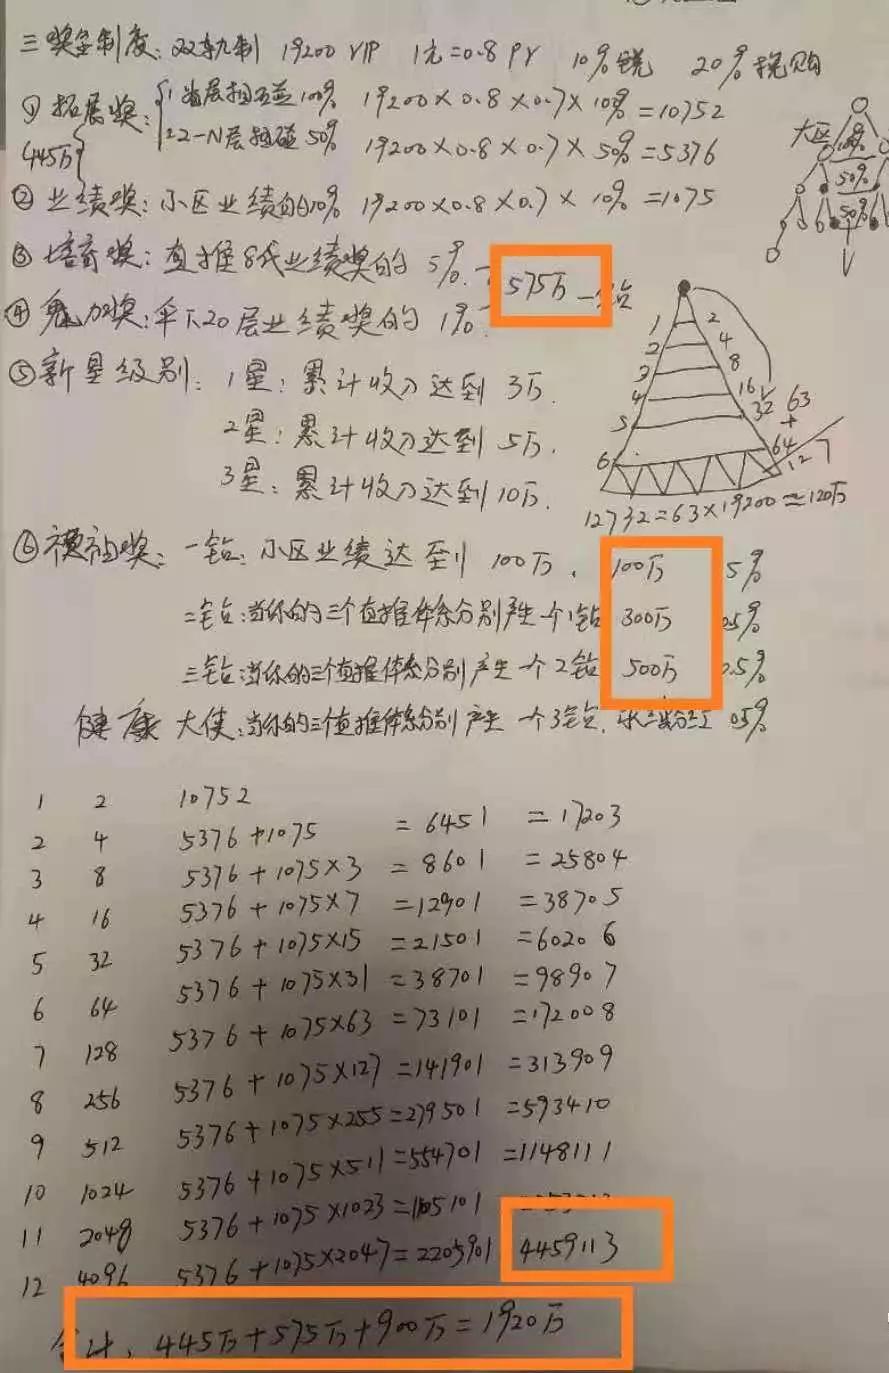 三 奖金制度: 双轨制 19200 VIP 1元=0.8 PV 10% 税 20% 税购
① 拓展奖: 1 首层相互碰100% 19200×0.8×0.7×10% =10752
445万 2 2-N层碰 50% 19200×0.8×0.7×50%=5376
② 业绩奖: 小区业绩的10% 19200×0.8×0.7×10%=1075
③ 培育奖: 直推8代业绩奖的 5%
575万 一钻
④ 魅力奖: 伞下20层业绩奖的 1%
⑤ 新星级别: 1星: 累计收入达到 3万.
2星: 累计收入达到 5万.
3星: 累计收入达到10万.
大区
100%
50%
50%
1 2
2 4
3 8
4 16
5 32 63
+
6 64
127
12732=63×19200≈120万
⑥ 福祉奖: 一钻: 小区业绩达到 100万、 100万 5%
二钻: 当你的三个直推体系分别产生一个1钻 300万 0.5%
三钻: 当你的三个直推体系分别产生一个2钻 500万 0.5%
健康大使: 当你的三个直推体系分别产生一个3钻, 05%
1 2 10752
2 4 5376+1075 =6451 =17203
3 8 5376+1075×3 =8601 =25804
4 16 5376+1075×7 =12901 =38705
5 32 5376+1075×15 =21501 =60206
6 64 5376+1075×31 =38701 =98907
7 128 5376+1075×63 =73101 =172008
8 256 5376+1075×127=141901 =313909
9 512 5376+1075×255=279501 =593410
10 1024 5376+1075×511=554701 =1148111
11 2048 5376+1075×1023=1105101
12 4096 5376+1075×2047=2205901 4459113
合计, 445万+575万+900万=1920万